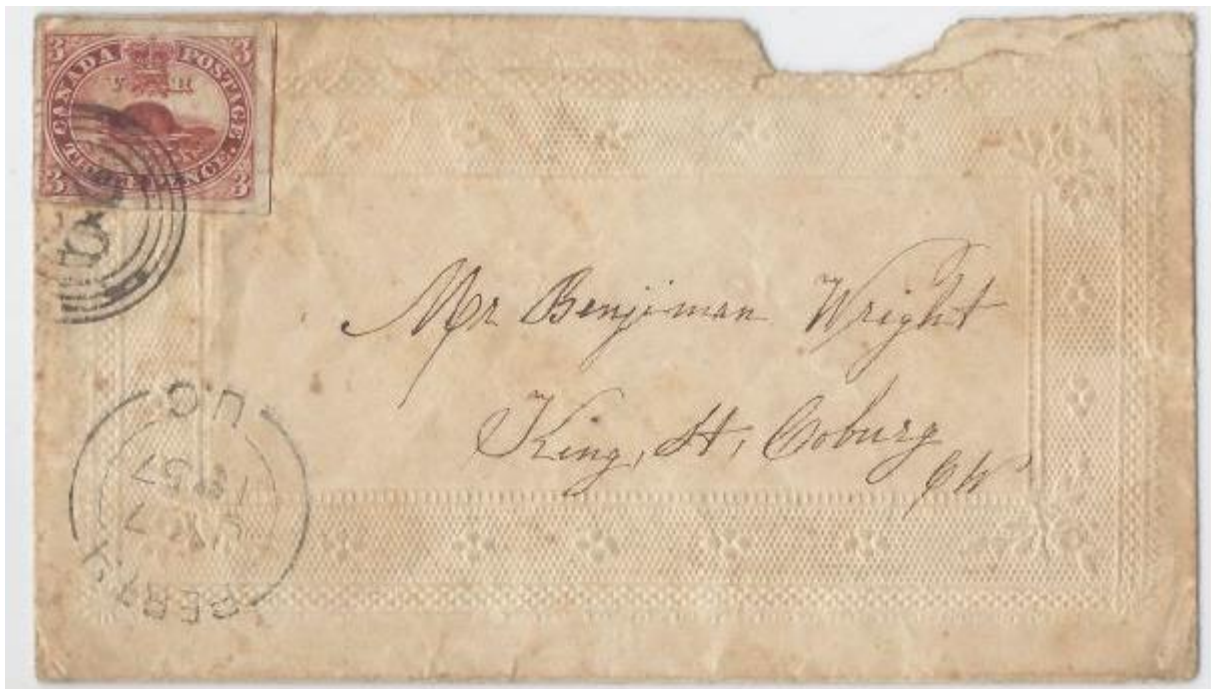 3 CANADA POSTAGE 3
V R
3 THREE PENCE. 3
Mr Benjiman Wright
King, St, Coburg
CW
PERTH
7
1857
U.C